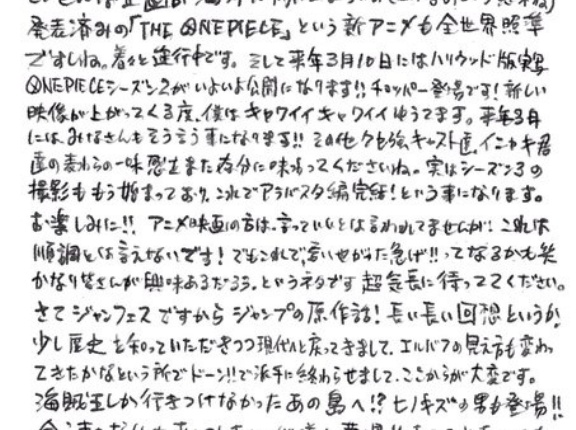 発表済みの「THE ONEPIECE」という新アニメも全世界照準
ですしね。着々と進行中です。そして来年3月10日にはハリウッド版実写
ONEPIECEシーズン2がいよいよ公開になります!!チョッパー登場です!新しい
映像が上がってくる度、僕はキャワイイキャワイイゆうてます。来年3月
には、みなさんもそう言う事になります!!その他クセ強キャスト達、イニャキ君
達の麦わらの一味愛もまた存分に味わってくださいね。実はシーズン3の
撮影ももう始まっており、これでアラバスタ編完結!という事になります。
お楽しみに!!アニメ映画の方は、言っていいとは言われてませんが!これは
順調とは言えないです!でもこれで、言いせがった急げ!!ってなるかも笑
かなり皆さんが興味あるだろう、というネタです 超気長に待っててください。
さてジャンフェスですからジャンプの原作話!長い長い回想というか、
少し歴史を知っていただきつつ現代へと戻ってきまして、エルバフの見え方も変わっ
てきたかなという所でドーン!!で派手に終わらせまして、ここからが大変です。
海賊王しか行きつけなかったあの島へ!?ヒノキズの男も登場!!